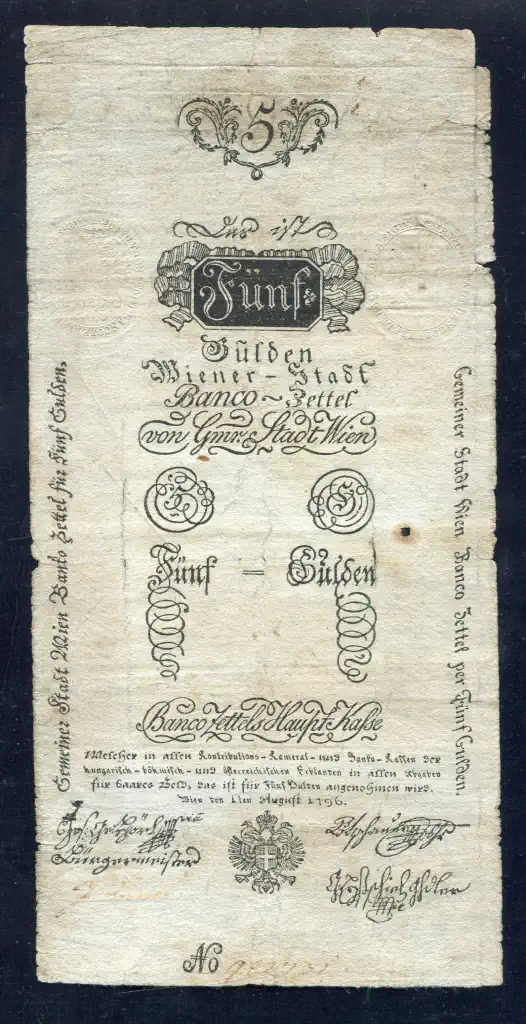 5
Das ist
Fünf
Gülden
Wiener-Stadt
Banco-Zettel
von Gmr. Stadt Wien
5
Fünf — Gülden
Banco Zettels Haupt-Kasse
Welcher in allen Kontributions-Kameral-und Banko-Kassen der
hungarisch-böhmisch-und österreichischen Erblanden in allen Abgaben
für baares Geld, das ist für Fünf Gulden angenommen wird.
Wien den 1ten August 1796.
Bürgermeister
No
Gemeiner Stadt Wien Banko Zettel für Fünf Gulden.
Gemeiner Stadt Wien Banco Zettel per Fünf Gulden.